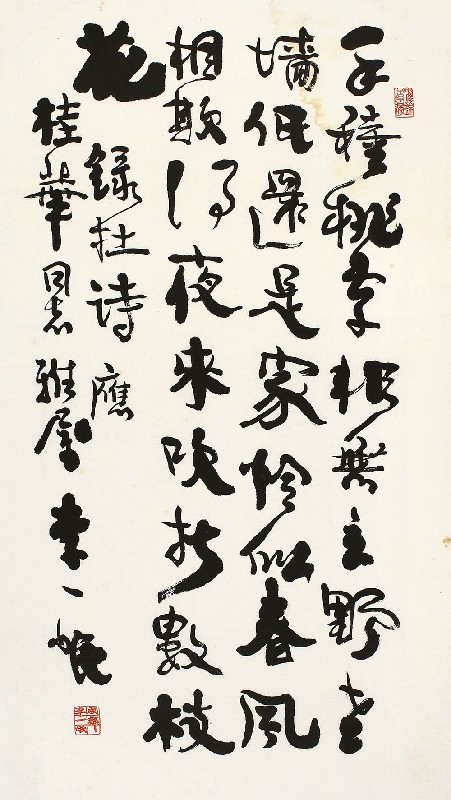 手種桃李非無主野老
墻低還是家恰似春風
相欺得夜來吹折數枝
花 錄杜詩 應
桂華同志雅屬 李一氓